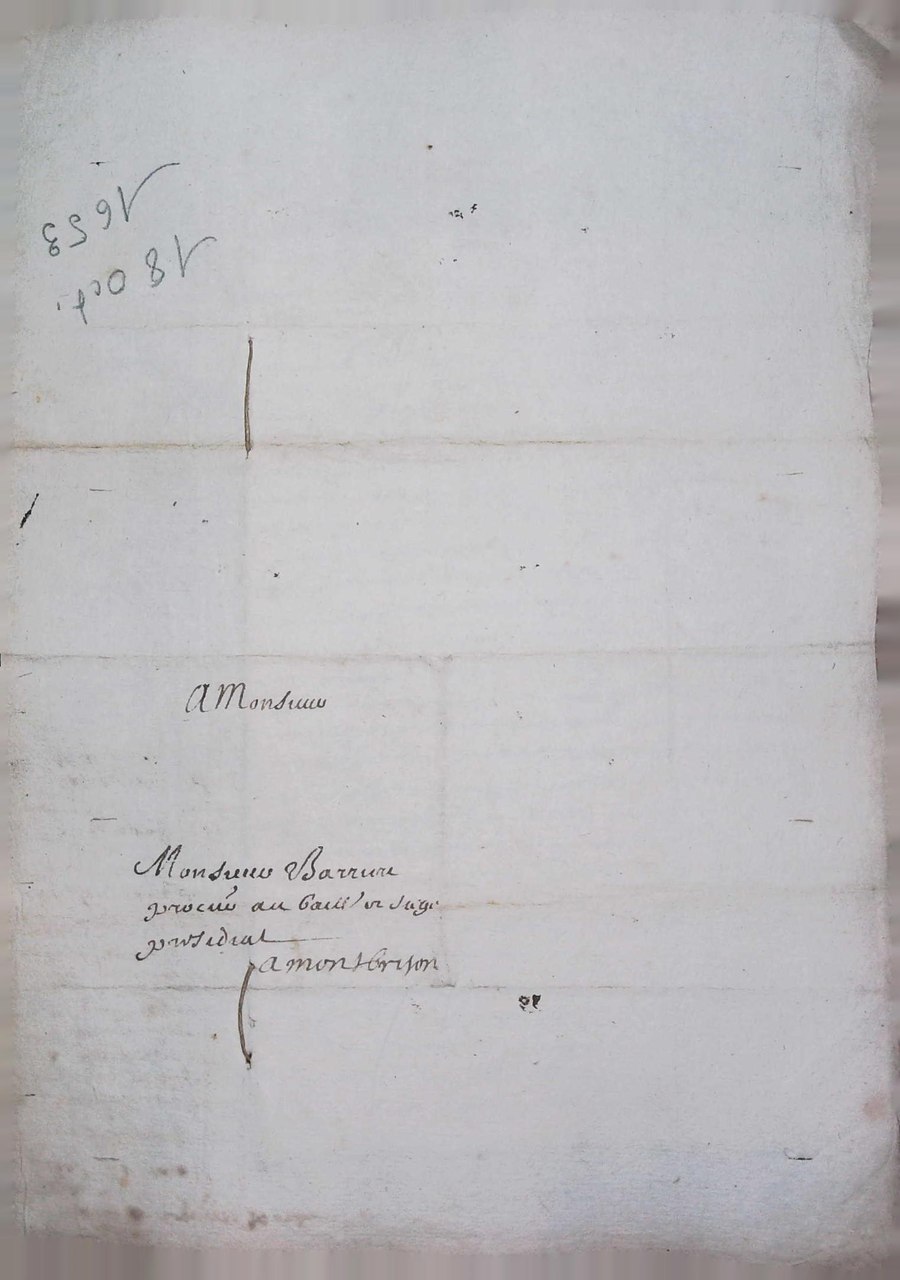 1653
18 Oct.
A Monsieur
Monsieur Barriere
procur au baill et siege
presidial
a montbrison